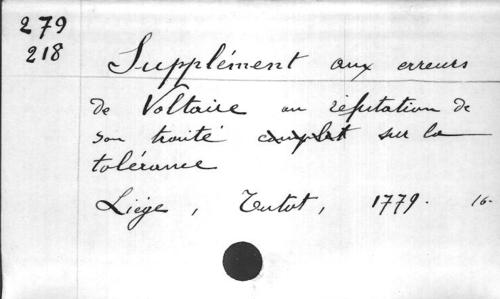 279
218
Supplément aux erreurs
de Voltaire ou réfutation de
son traité complet sur la
tolérance
Liège, Tutot, 1779. 16-